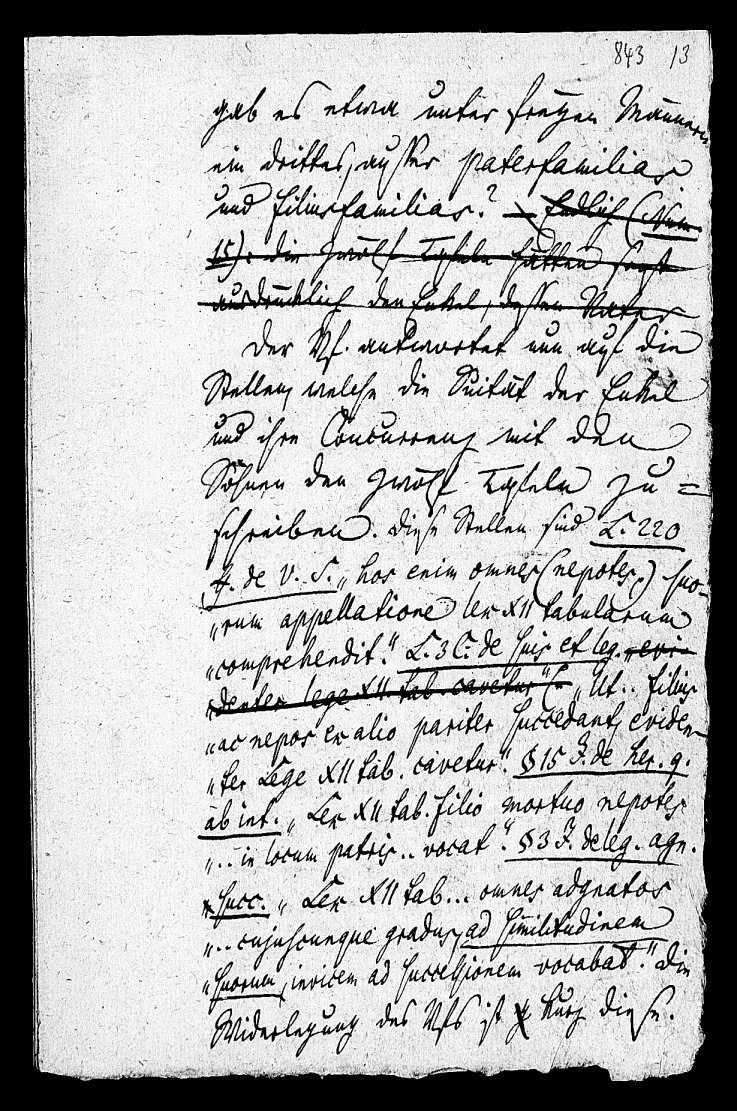 843 13
gab es etwa unter freyen Männern
ein drittes, ausser paterfamilias
und filiusfamilias? – Endlich (Num.
15): die zwölf Tafeln hätten sagt
ausdrücklich den Enkel, dessen Vater
Der Vf. antwortet nun auf die
Stellen, welche die Suität der Enkel
und ihre Concurrenz mit den
Söhnen den zwölf Tafeln zu =
schreiben. Diese Stellen sind L. 220
ff. de V. S. „hos enim omnes (nepotes..) suo-
„rum appellatione lex XII tabularum
„comprehendit.“ L. 3 C. de suis et leg. „evi-
„denter lege XII tab. cavetur“ (– „Ut.. filius
„ac nepos ex alio pariter succedant, eviden-
„ter Lege XII tab. cavetur“. § 15 J. de her. q.
ab int. „Lex XII tab. filio mortuo nepotes
„.. in locum patris.. vocat“. § 3 J. de leg. agn.
succ. „Lex XII tab... omnes adgnatos
„.. cujuscunque gradus, ad similitudinem
„suorum, invicem ad successionem vocabat.“ Die
Widerlegung des Vfs ist kurz diese.